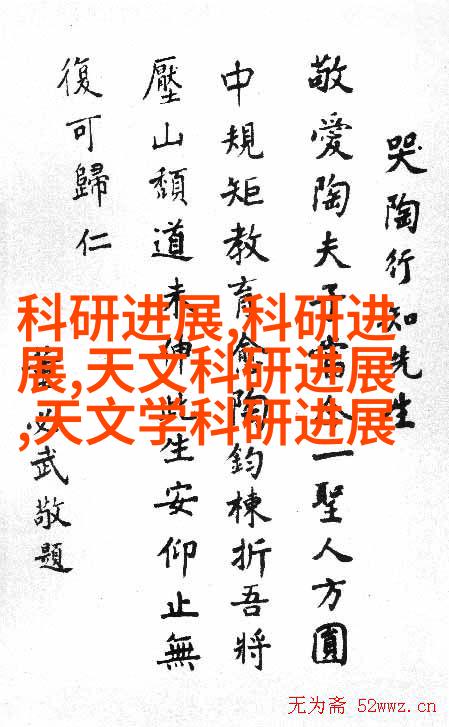 哭陶行知先生
敬愛陶夫子當今一聖人方圓
中規矩教育愈陶鈞棟折吾將
壓山頹道未伸此生安仰止無
復可歸仁
董必武敬題
科研进展,科研进
展,天文科研进展
,天文学科研进展
无为斋 52wwz.cn